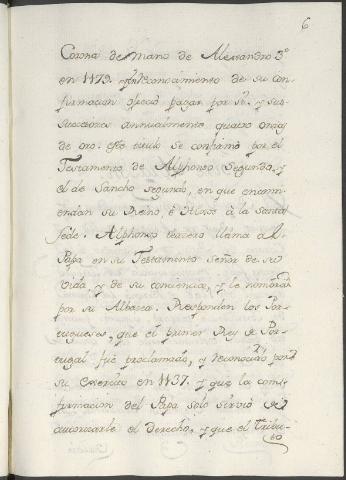 6
Corona de mano de Alessandro 3º
en 1179. reconocimiento de su con-
firmacion ofreció pagar por si, y sus
sucessores annualmente quatro onzas
de oro. este titulo se confirmó por el
Testamento de Alphonso Segundo, y
el de Sancho segundo, en que encomi-
endan su Reino, è Hixos à la Santa
Sede. Alphonso tercero llama al
Papa en su Testamento Señor de su
vida, y de su conciencia, y le nombra
por su Albacea. Responden los Por-
tugueses, que el primer Rey de Por-
tugal fué proclamado, y reconocido por
su Exercito en 1137. y que la con-
firmacion del Papa solo sirvió de
autorizarle el derecho, y que el tribu-
to